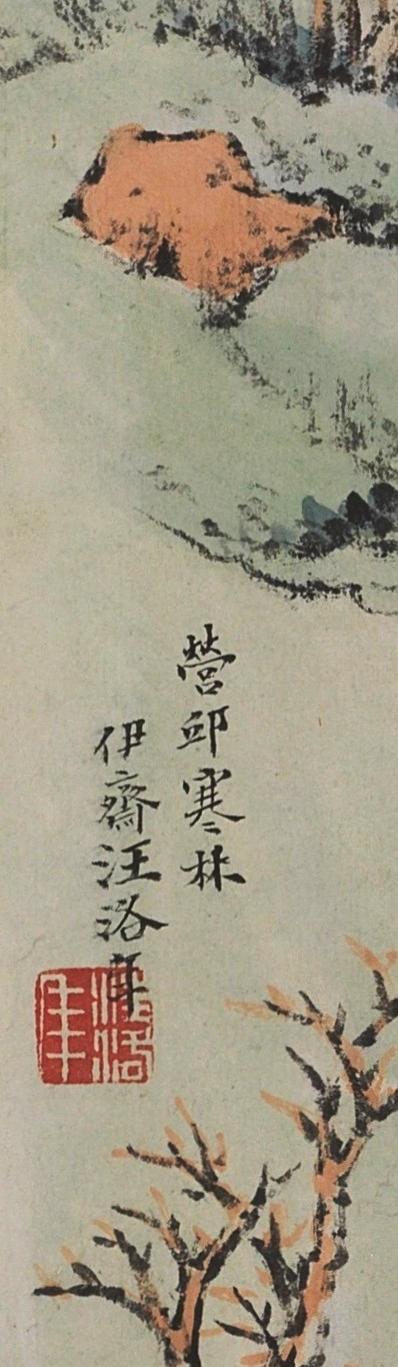 營邱寒林
伊齋汪洛年
汪洛年